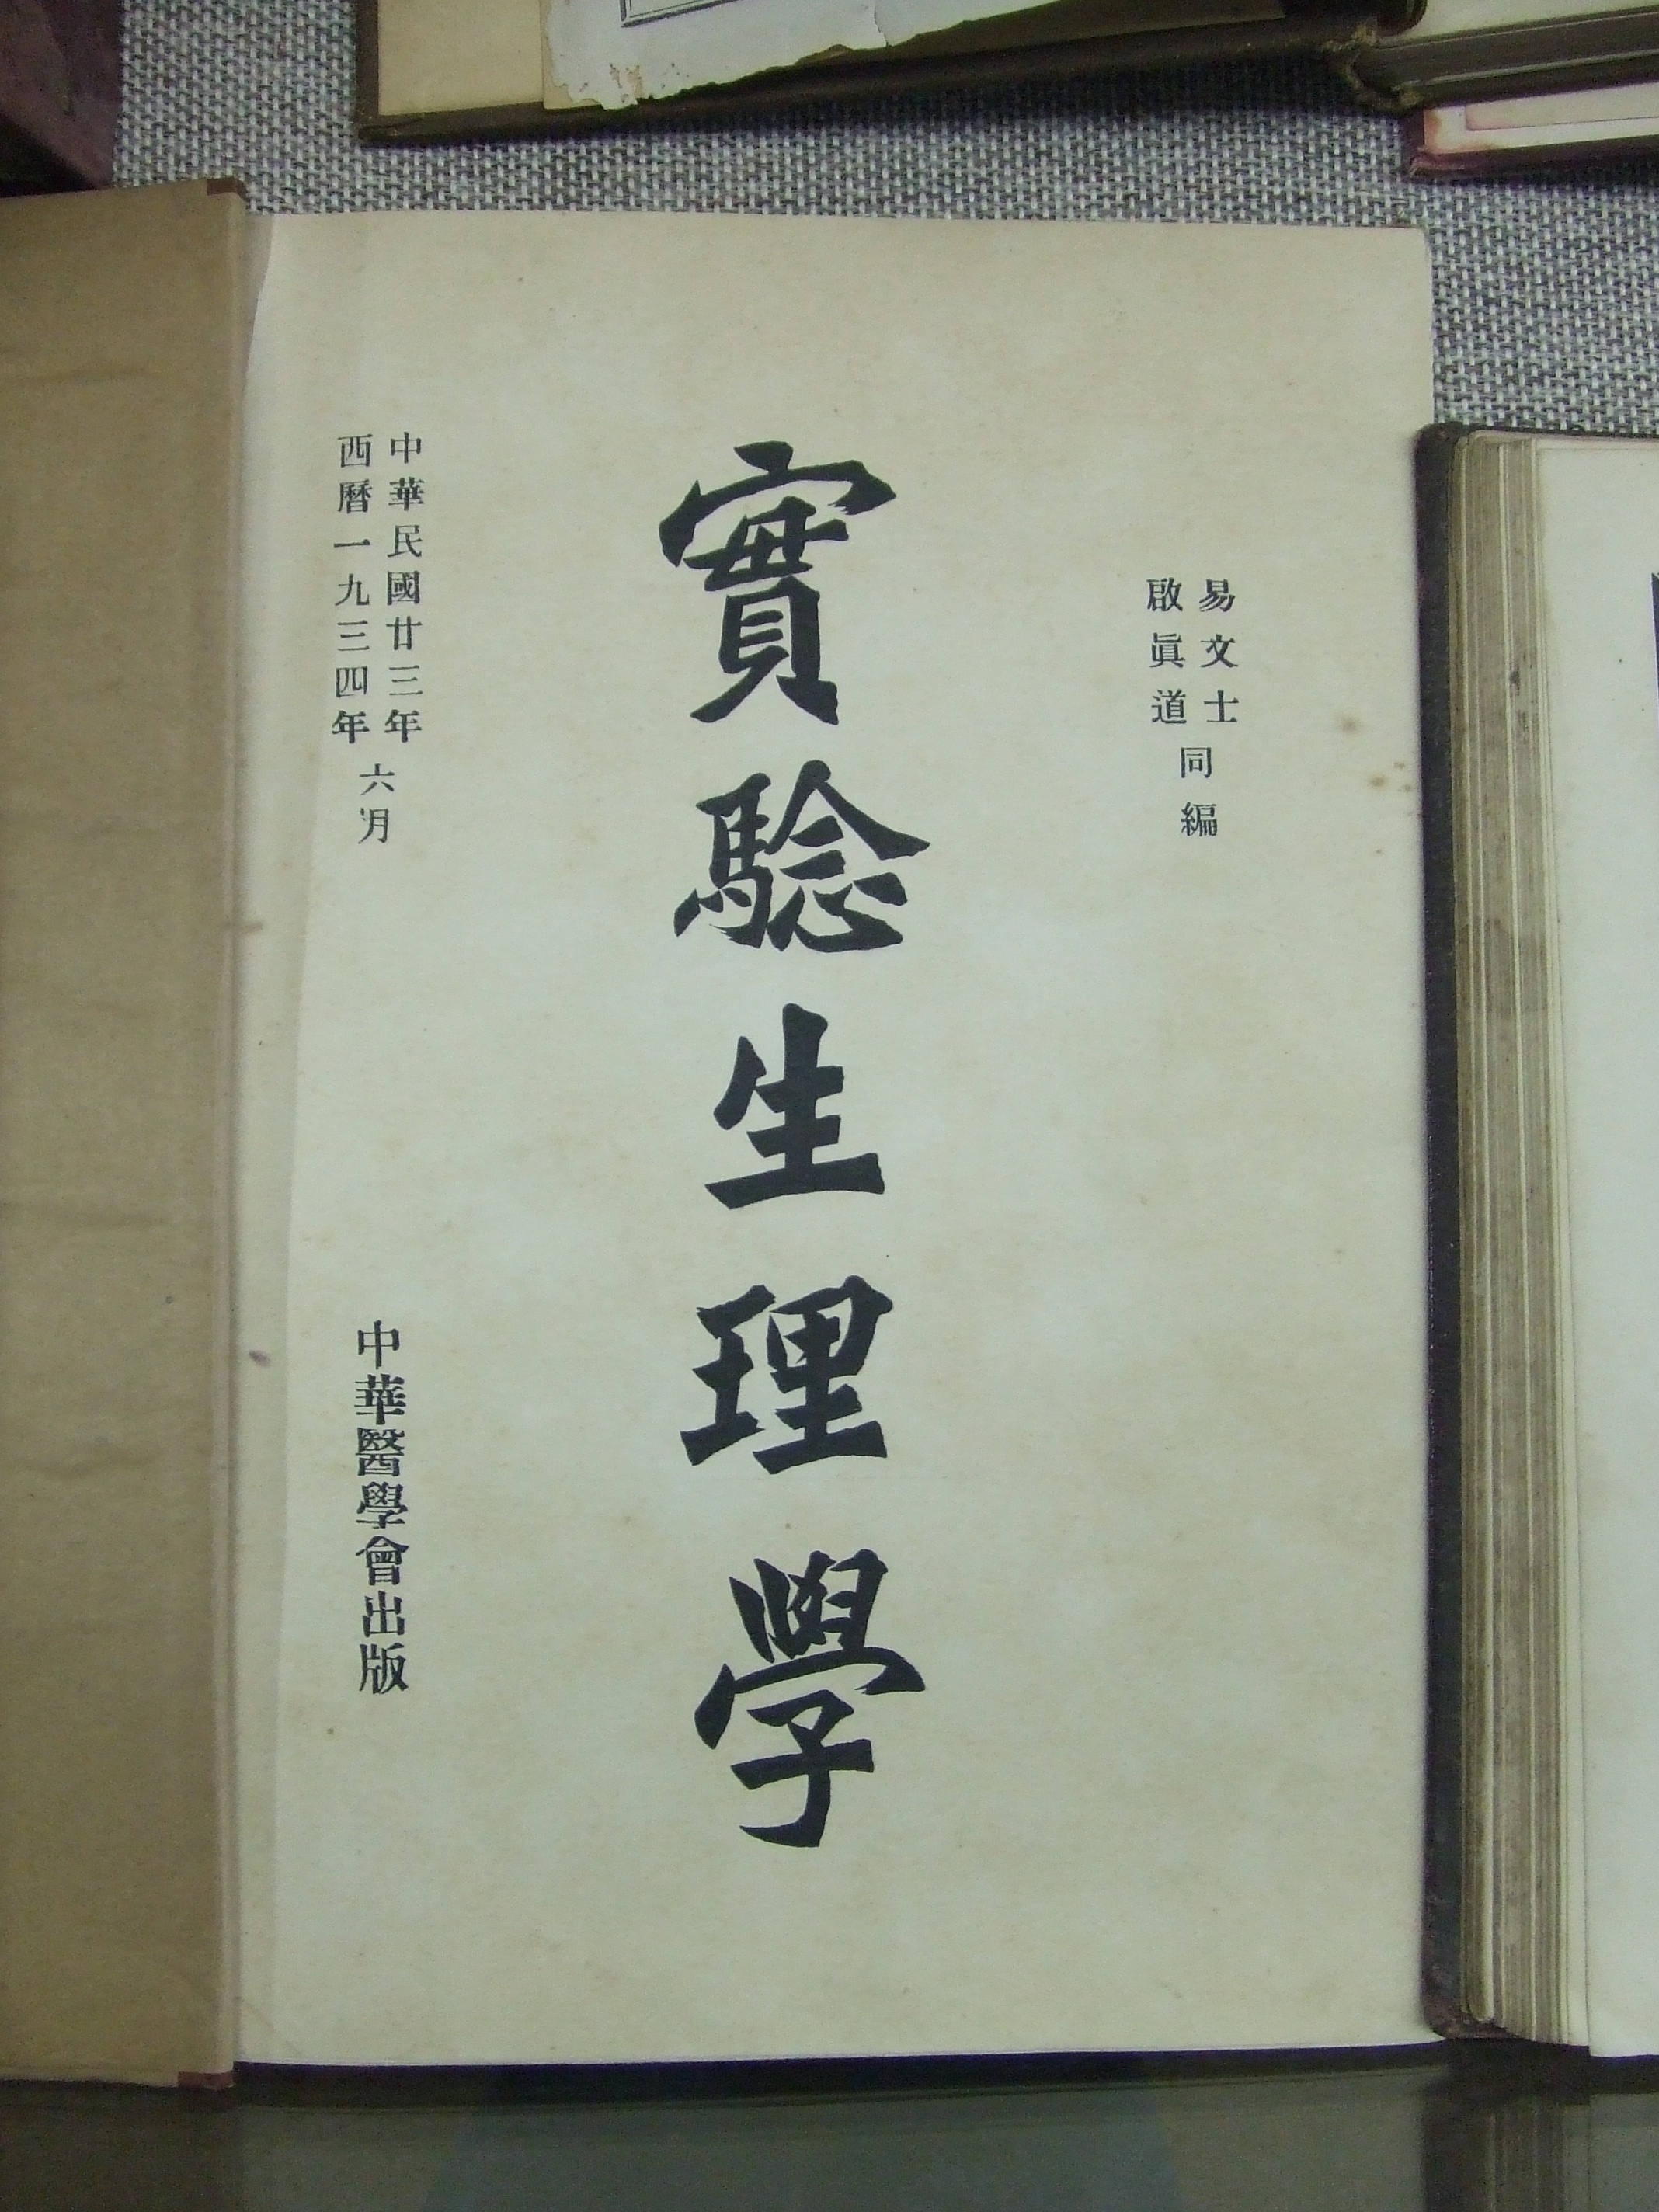 易文士
啟眞道
同編
實騐生理學
中華民國廿三年
西曆一九三四年
六月
中華醫學會出版